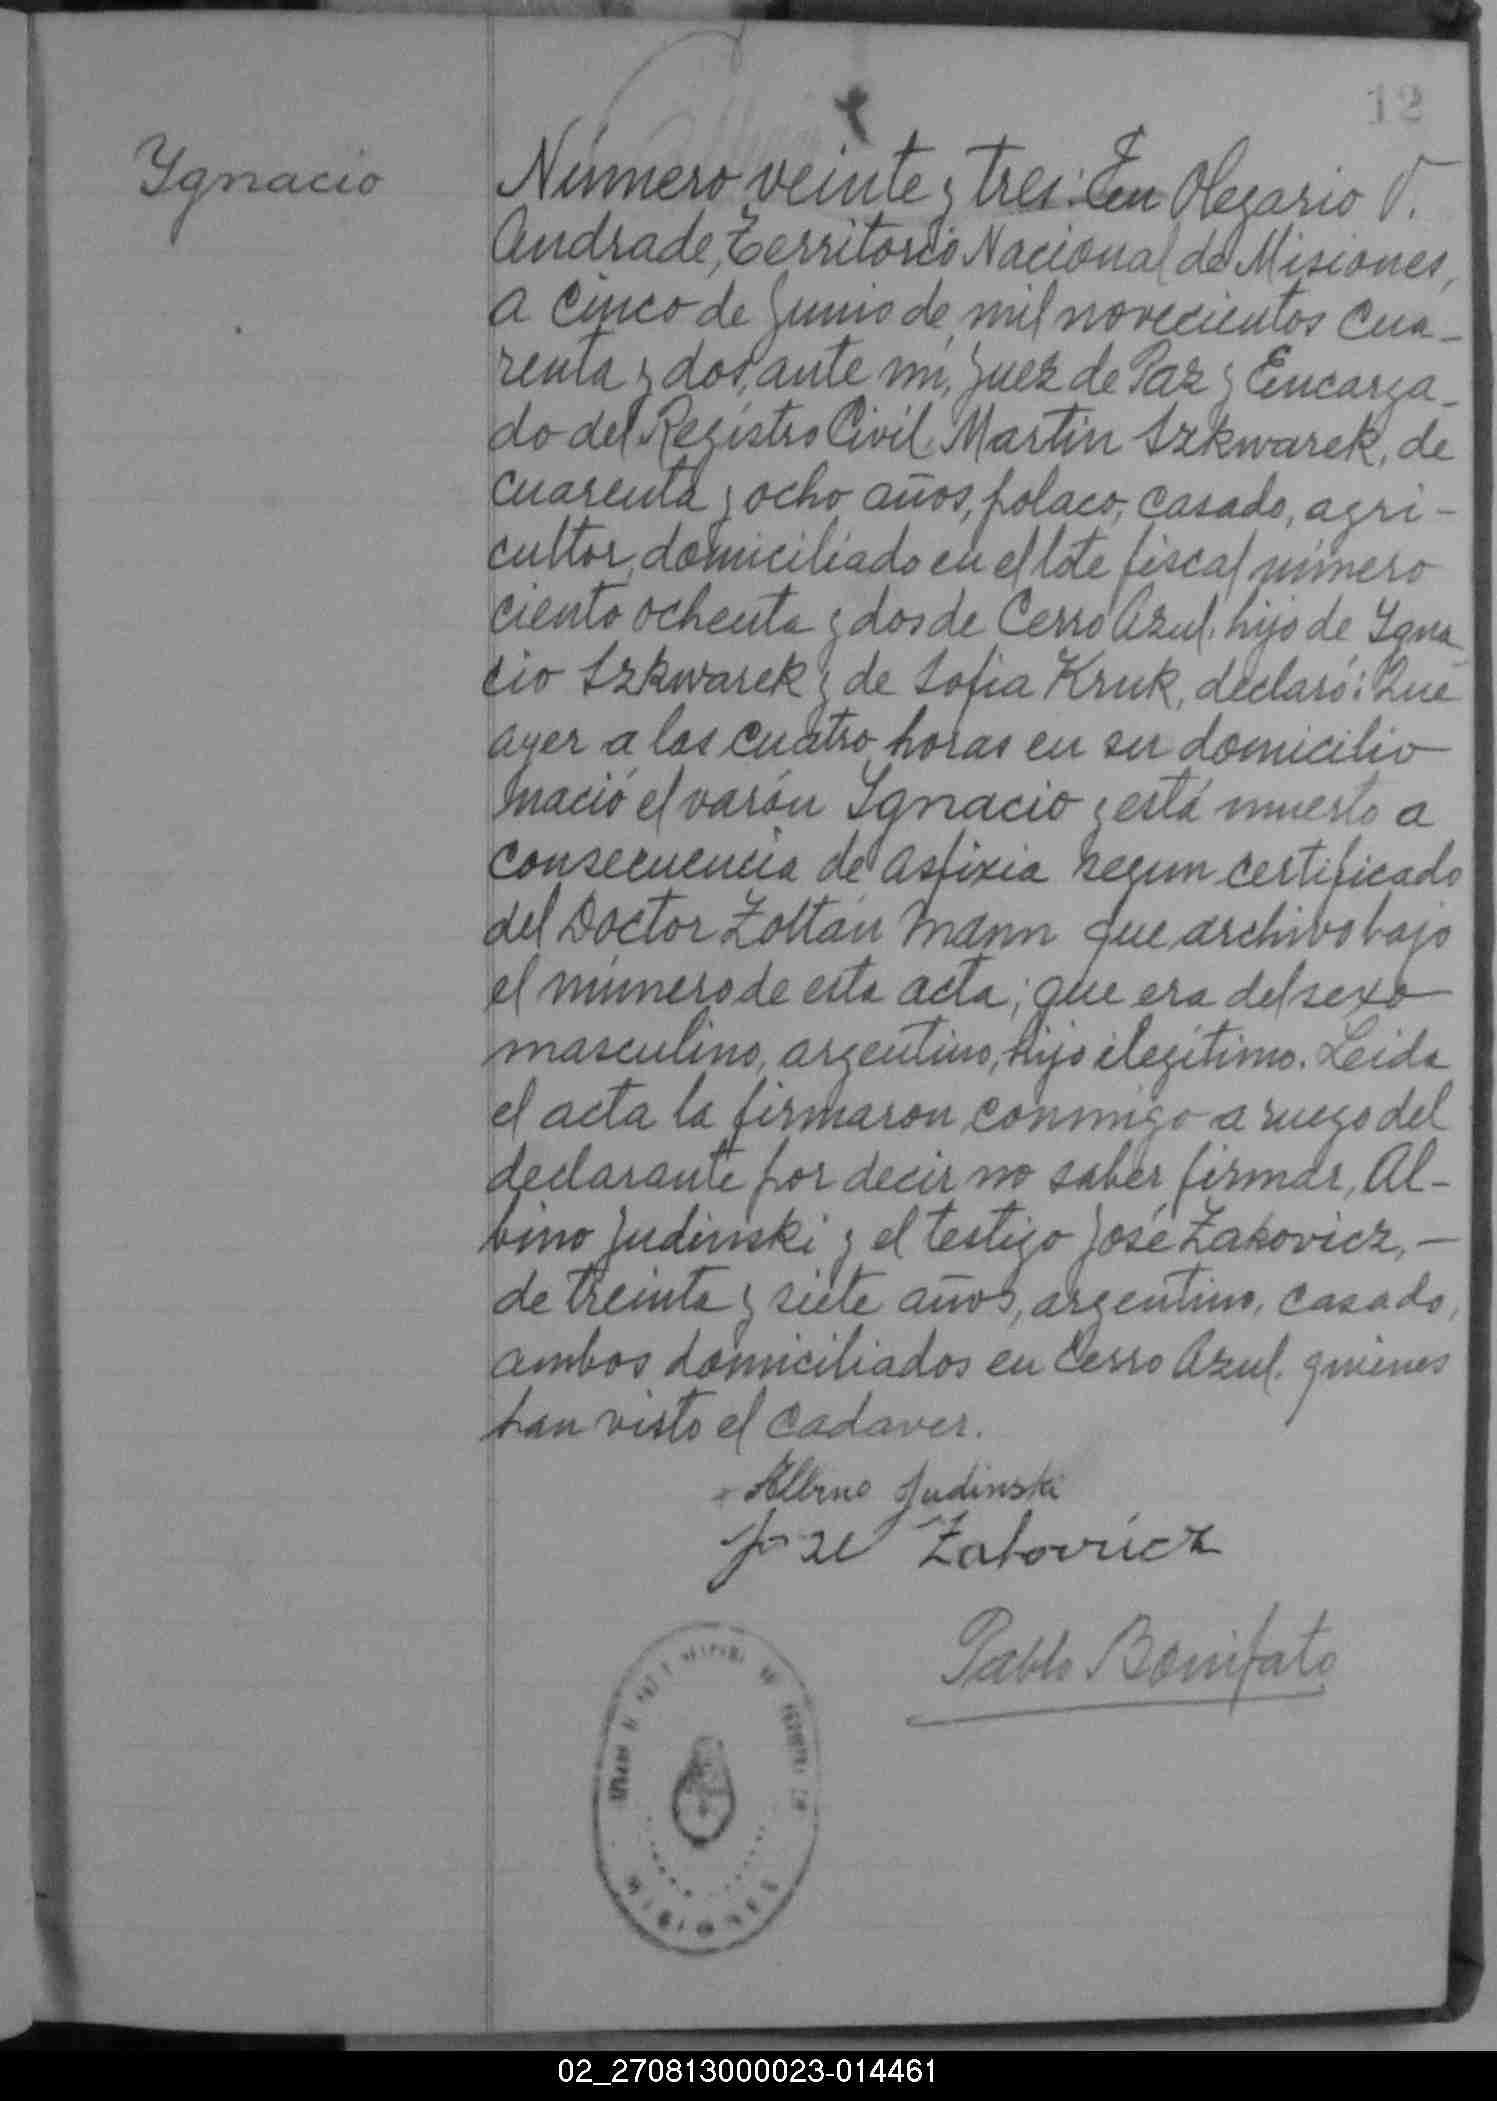 12
Ygnacio
Número veinte y tres: En Olegario V.
Andrade, Territorio Nacional de Misiones,
a cinco de Junio de mil novecientos cua-
renta y dos, ante mi, Juez de Paz y Encarga-
do del Registro Civil. Martin Szkwarek, de
cuarenta y ocho años, polaco, casado, agri-
cultor, domiciliado en el lote fiscal número
ciento ochenta y dos de Cerro Azul. hijo de Ygna
cio Szkwarek y de Sofia Kruk, declaró: Que
ayer a las cuatro horas en su domicilio
nació el varón Ygnacio y está muerto a
consecuencia de asfixia segun certificado
del Doctor Zoltán Mann que archivo bajo
el número de esta acta; que era del sexo
masculino, argentino, hijo ilegítimo. Leida
el acta la firmaron conmigo a ruego del
declarante por decir no saber firmar, Al-
bino Judinski y el testigo José Zakovicz, -
de treinta y siete años, argentino, casado,
ambos domiciliados en Cerro Azul. quienes
han visto el cadaver.
Albino Judinski
José Zakovicz
Pablo Bonifato
MISIONES
02_270813000023-014461